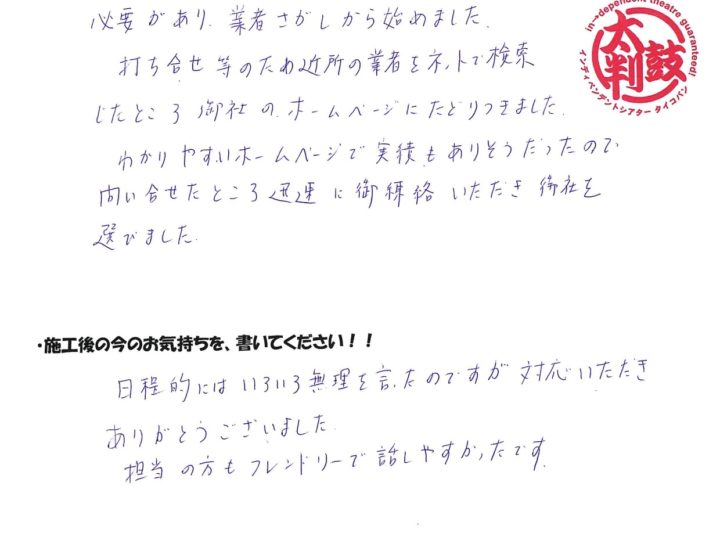 必要があり、業者さがしから始めました。
打ち合せ等のため近所の業者をネットで検索
したところ御社のホームページにたどりつきました。
わかりやすいホームページで実績もありそうだったので
問い合せたところ迅速に御連絡いただき御社を
選びました。
in→dependent theatre guaranteed!
太鼓判
インディペンデントシアター タイコバン
・施工後の今のお気持ちを、書いてください！！
日程的にはいろいろ無理を言ったのですが対応いただき
ありがとうございました。
担当の方もフレンドリーで話しやすかったです。